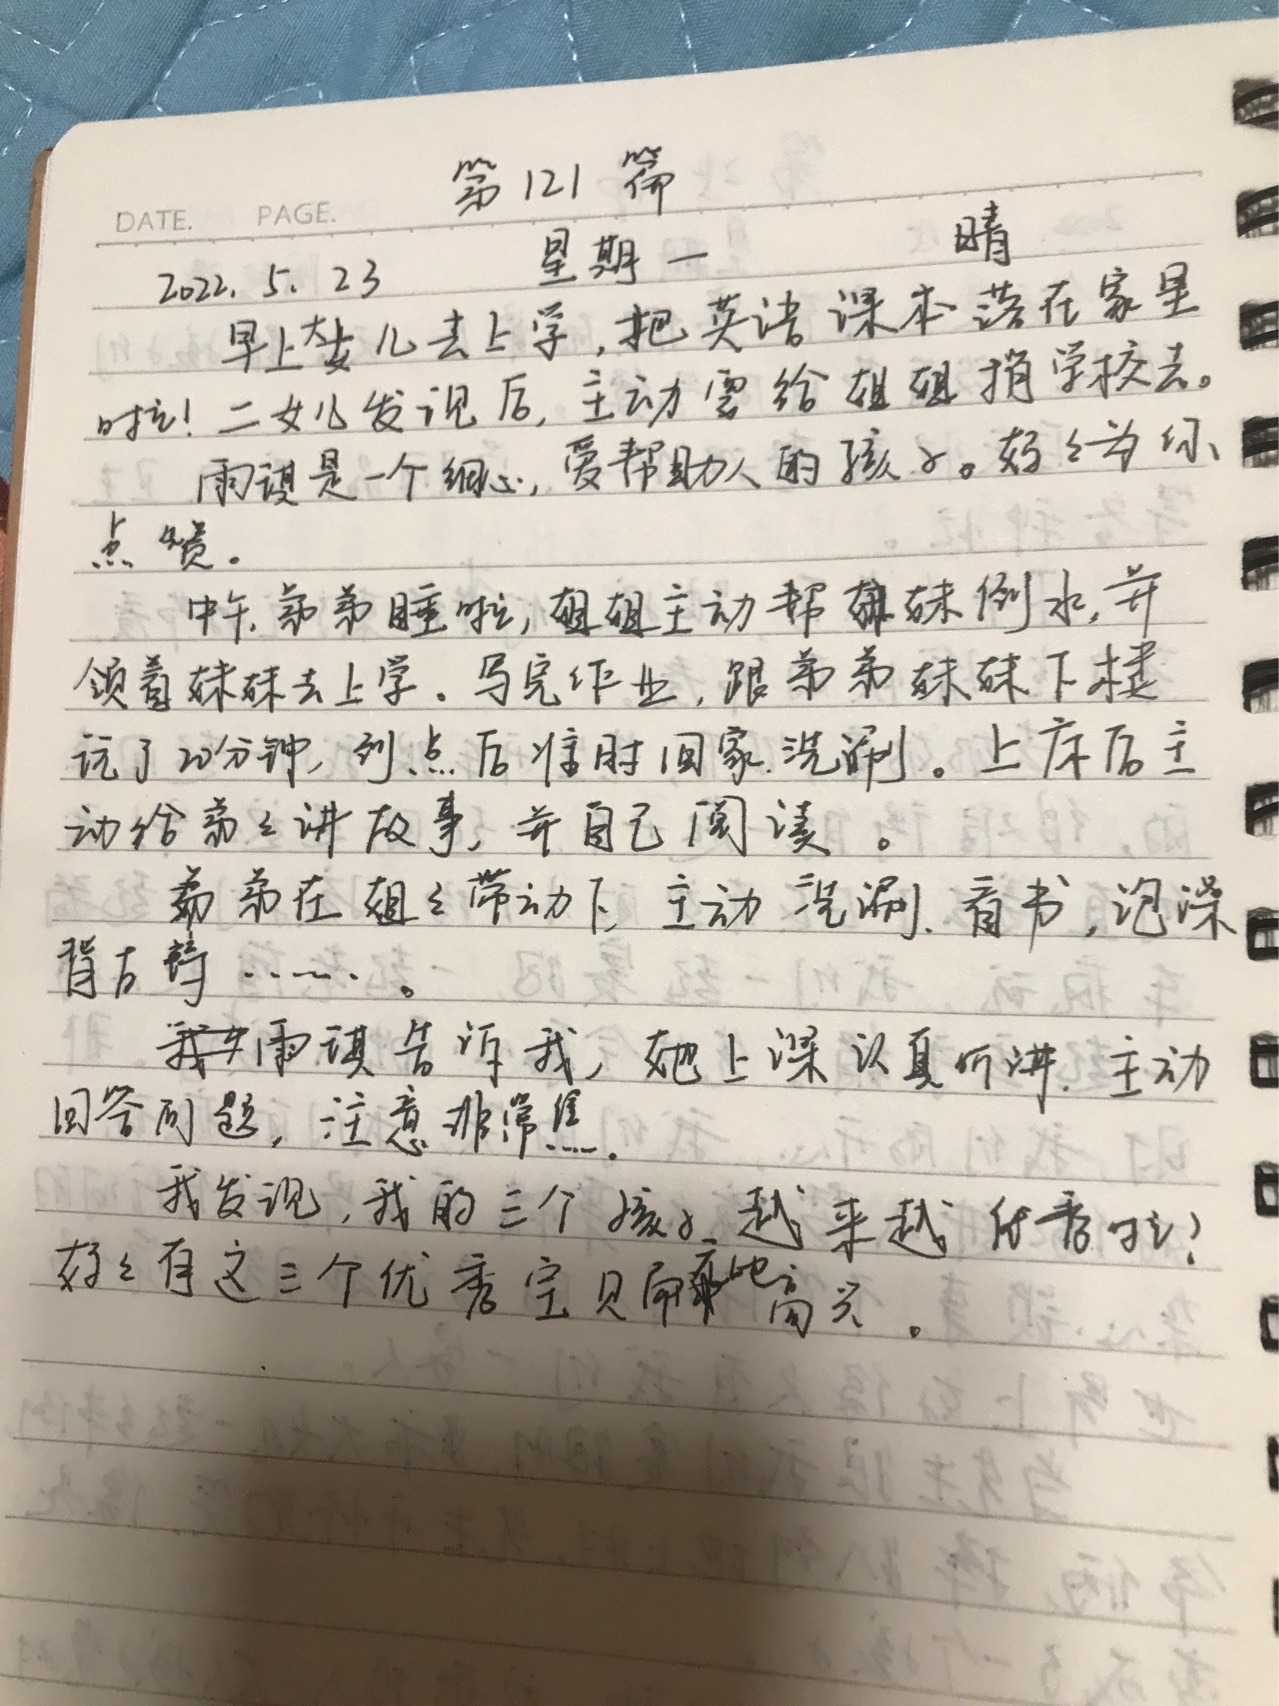 第121篇
DATE. PAGE.
2022.5.23 星期一 晴
早上大女儿去上学,把英语课本落在家里
啦!二女儿发现后,主动要给姐姐捎学校去。
雨谋是一个细心,爱帮助人的孩子。好々为你
点赞。
中午,弟弟睡啦,姐姐主动帮妹妹倒水,并
领着妹妹去上学。写完作业,跟弟弟妹妹下楼
玩了20分钟,到点后准时回家洗涮。上床后主
动给弟々讲故事,并自己阅读。
弟弟在姐々带动下,主动洗涮、看书,泡澡
背古诗……。
雨谋告诉我,她上课认真听讲、主动
回答问题,注意非常集……
我发现,我的三个孩子越来越优秀啦!
好々有这三个优秀宝贝而高兴。